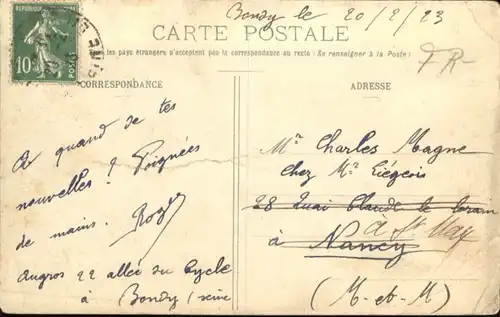 Bondy le 20/2/23
RÉPUBLIQUE
10
POSTES
CARTE POSTALE
les pays étrangers n'acceptent pas la correspondance au recto : (Se renseigner à la Poste)
F R-
CORRESPONDANCE
ADRESSE
A quand de tes
nouvelles ? Poignées
de mains. Roger
Augros 22 allée du Cycle
à Bondy (Seine
Mr Charles Magne
chez Mr Liégeois
28 Quai Claude le Lorain
à St Max
à Nancy
(M-et-M)